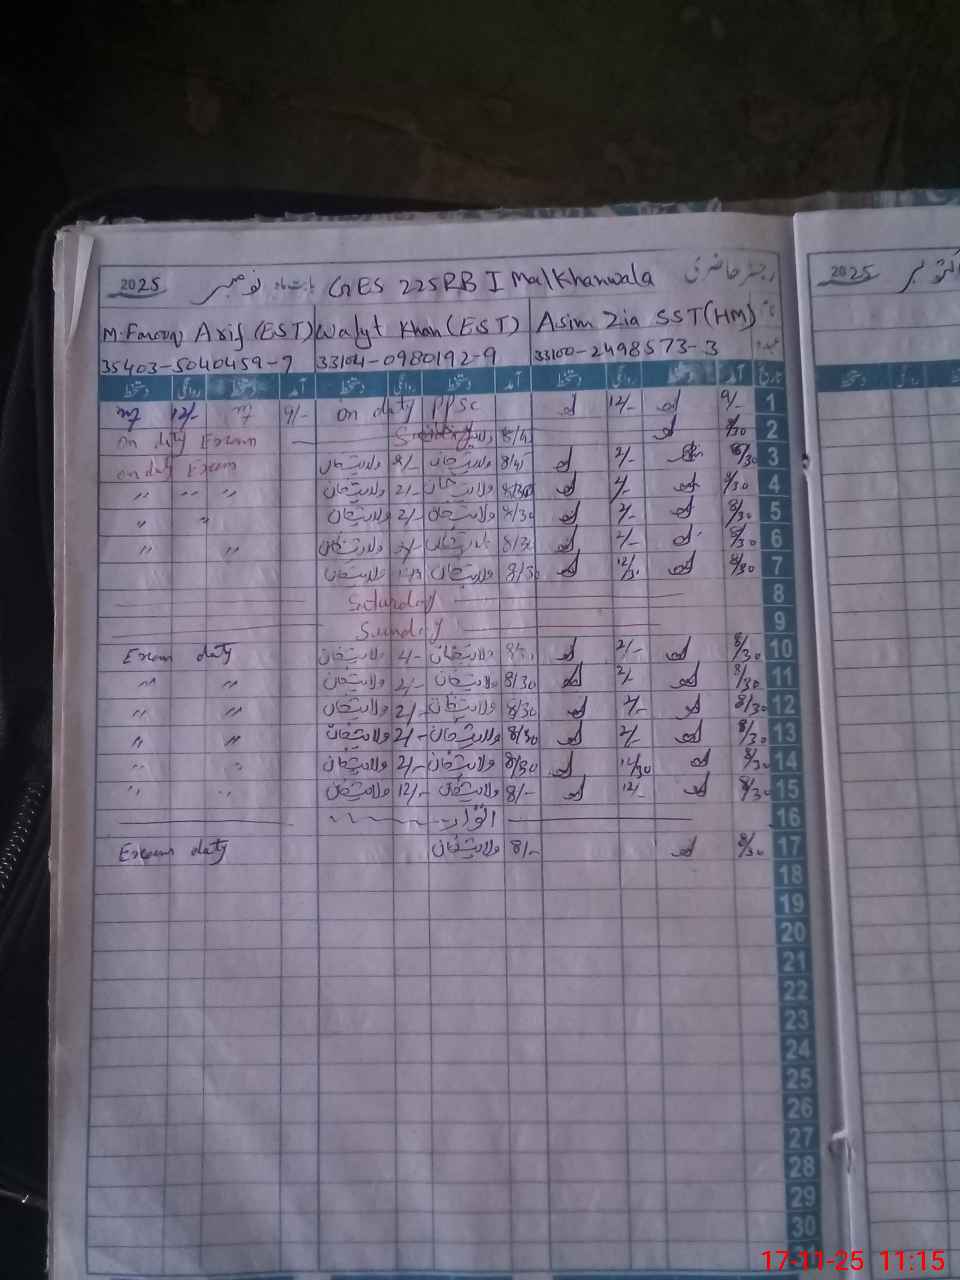 رجسٹر حاضری GES 225RB I Malkhanwala بابت ماہ نومبر 2025
M. Farooq Arif (EST) Walyt Khan (EST) Asim Zia SST (HM)
35403-5040459-7 33104-0980192-9 33100-2498573-3
تاریخ آمد دستخط روانگی دستخط آمد دستخط روانگی دستخط آمد دستخط روانگی دستخط
1 9/- 12/- on duty PPSC 9/- 12/-
2 8/30 Sunday ولایت خان 8/45 on duty Exam
3 8/30 2/- 8/45 ولایت خان 2/- ولایت خان on duty Exam
4 8/30 2/- 8/30 ولایت خان 2/- ولایت خان " " "
5 8/30 2/- 8/30 ولایت خان 2/- ولایت خان " "
6 8/30 2/- 8/30 ولایت خان 2/- ولایت خان " "
7 8/30 12/30 8/30 ولایت خان ولایت خان
8 Saturday
9 Sunday
10 8/30 2/- 8/30 ولایت خان 2/- ولایت خان Exam duty
11 8/30 2/- 8/30 ولایت خان 2/- ولایت خان " "
12 8/30 2/- 8/30 ولایت خان 2/- ولایت خان " "
13 8/30 2/- 8/30 ولایت خان 2/- ولایت خان " "
14 8/30 12/30 8/30 ولایت خان 2/- ولایت خان " "
15 8/30 12/- 8/- ولایت خان 12/- ولایت خان " "
16 اتوار
17 8/30 8/- ولایت خان Exam duty
18
19
20
21
22
23
24
25
26
27
28
29
30
2025 اکتوبر
17-11-25 11:15